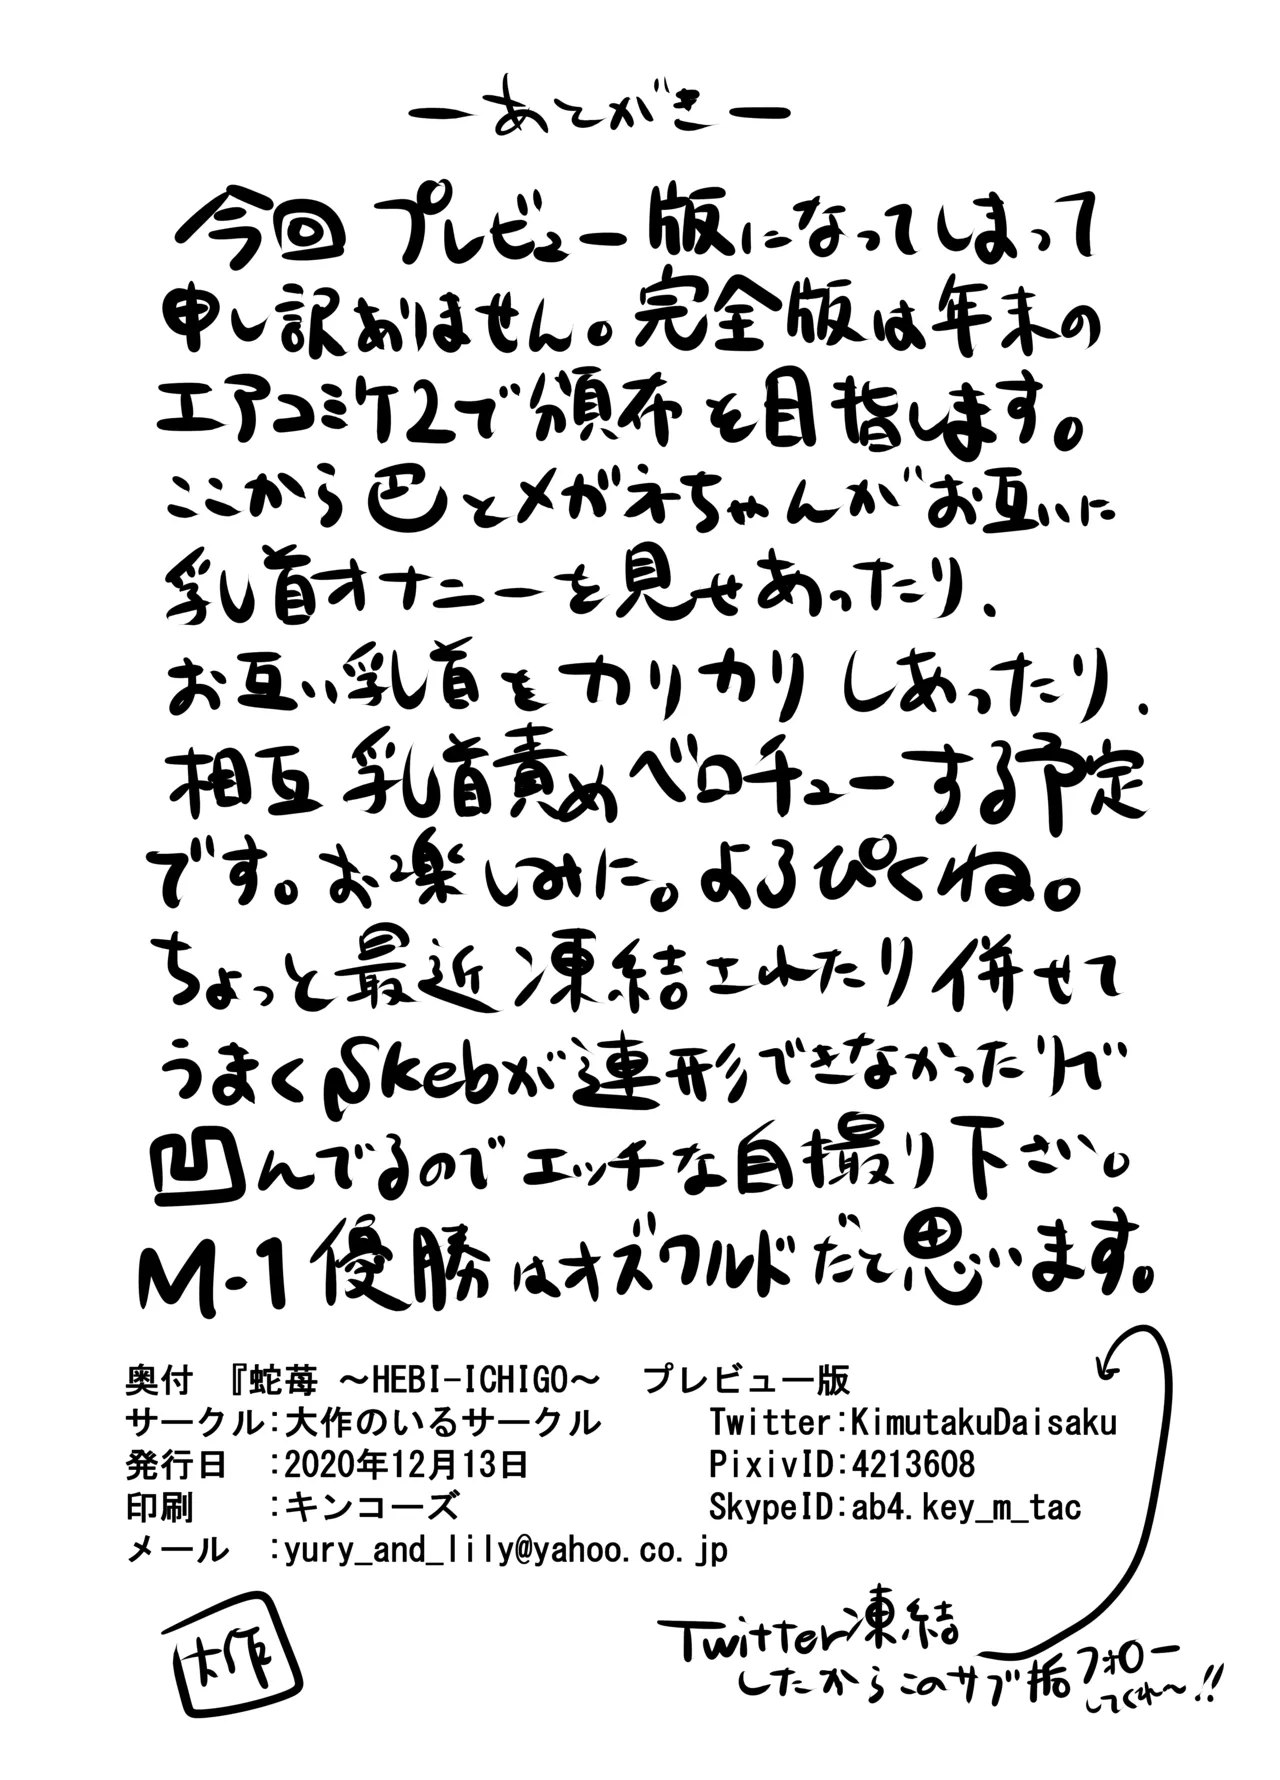 ーあとがきー
今回プレビュー版になってしまって
申し訳ありません。完全版は年末の
エアコミケ2で頒布を目指します。
ここから巴とメガネちゃんがお互いに
乳首オナニーを見せあったり、
お互い乳首をカリカリしあったり、
相互乳首責めベロチューする予定
です。お楽しみに。よろぴくね。
ちょっと最近凍結されたり併せて
うまくSkebが連形できなかったりで
凹んでるのでエッチな自撮り下さい。
M-1優勝はオズワルドだと思います。
奥付 『蛇苺 ～HEBI-ICHIGO～ プレビュー版
サークル:大作のいるサークル Twitter:KimutakuDaisaku
発行日 :2020年12月13日 PixivID:4213608
印刷 :キンコーズ SkypeID:ab4.key_m_tac
メール :yury_and_lily@yahoo.co.jp
大作
Twitter凍結
したからこのサブ垢フォロー
してくれ～!!